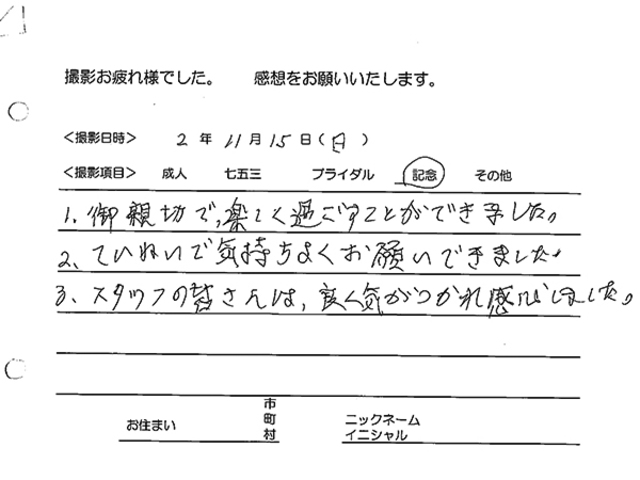 撮影お疲れ様でした。 感想をお願いいたします。
<撮影日時> 2 年 11 月 15 日 (日)
<撮影項目> 成人 七五三 ブライダル 記念 その他
1. 御親切で、楽しく過ごすことができました。
2、ていねいで気持ちよくお願いできました。
3、スタッフの皆さんは、良く気がつかれ感心しました。
お住まい 市町村 ニックネーム イニシャル